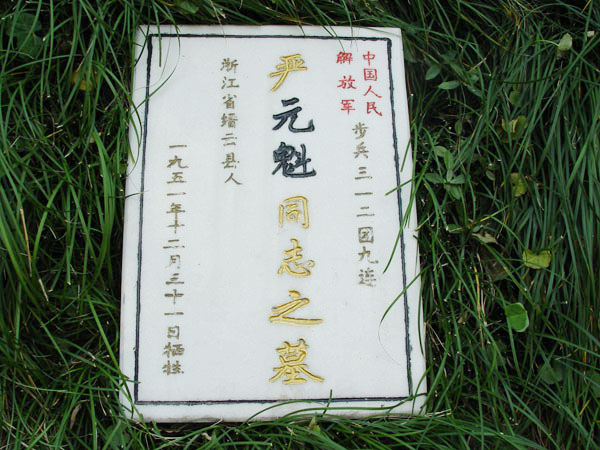 中国人民
解放军
步兵三一二团九连
严元魁同志之墓
浙江省缙云县人
一九五一年十二月三十一日牺牲